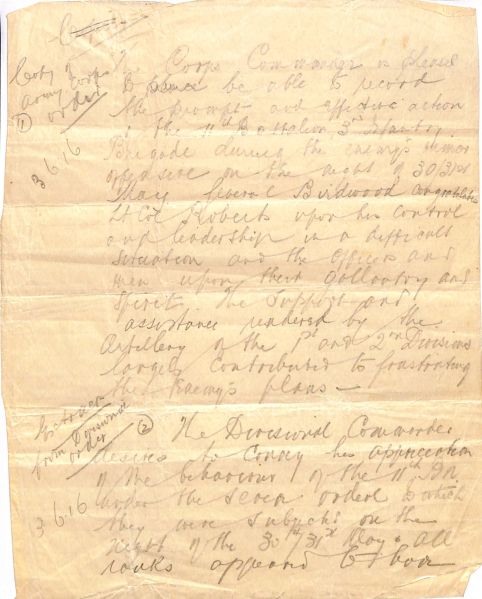 Copy of
Army Corps
order
①
3.6.16
The Corps Commander is pleased
to be able to record
the prompt and effective action
of the 11th Battalion, 3rd Infantry
Brigade during the enemy's minor
offensive on the night of 30/31st
May. General Birdwood congratulates
Lt Col Roberts upon his control
and leadership in a difficult
situation and the officers and
men upon their gallantry and
spirit. The support and
assistance rendered by the
Artillery of the 1st and 2nd Divisions
largely contributed to frustrating
the Enemy's plans —
Extract
from Divisional
order
3.6.16
② The Divisional Commander
desires to convey his appreciation
of the behaviour of the 11th Bn.
under the severe ordeal to which
they were subject on the
night of the 30th/31st May. All
ranks appeared to have